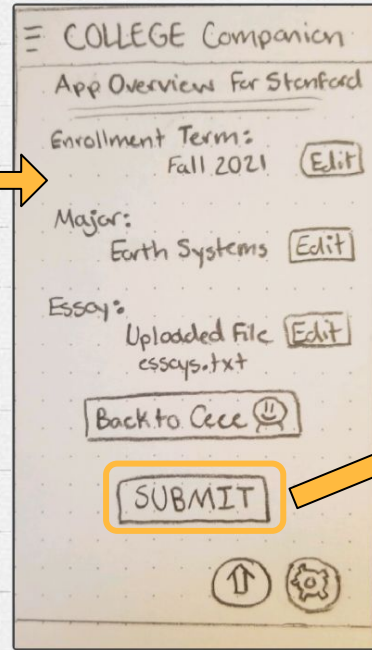 COLLEGE Companion
App Overview For Stanford
Enrollment Term:
Fall 2021 Edit
Major:
Earth Systems Edit
Essay:
Uploaded File Edit
essays.txt
Back to Cece
SUBMIT